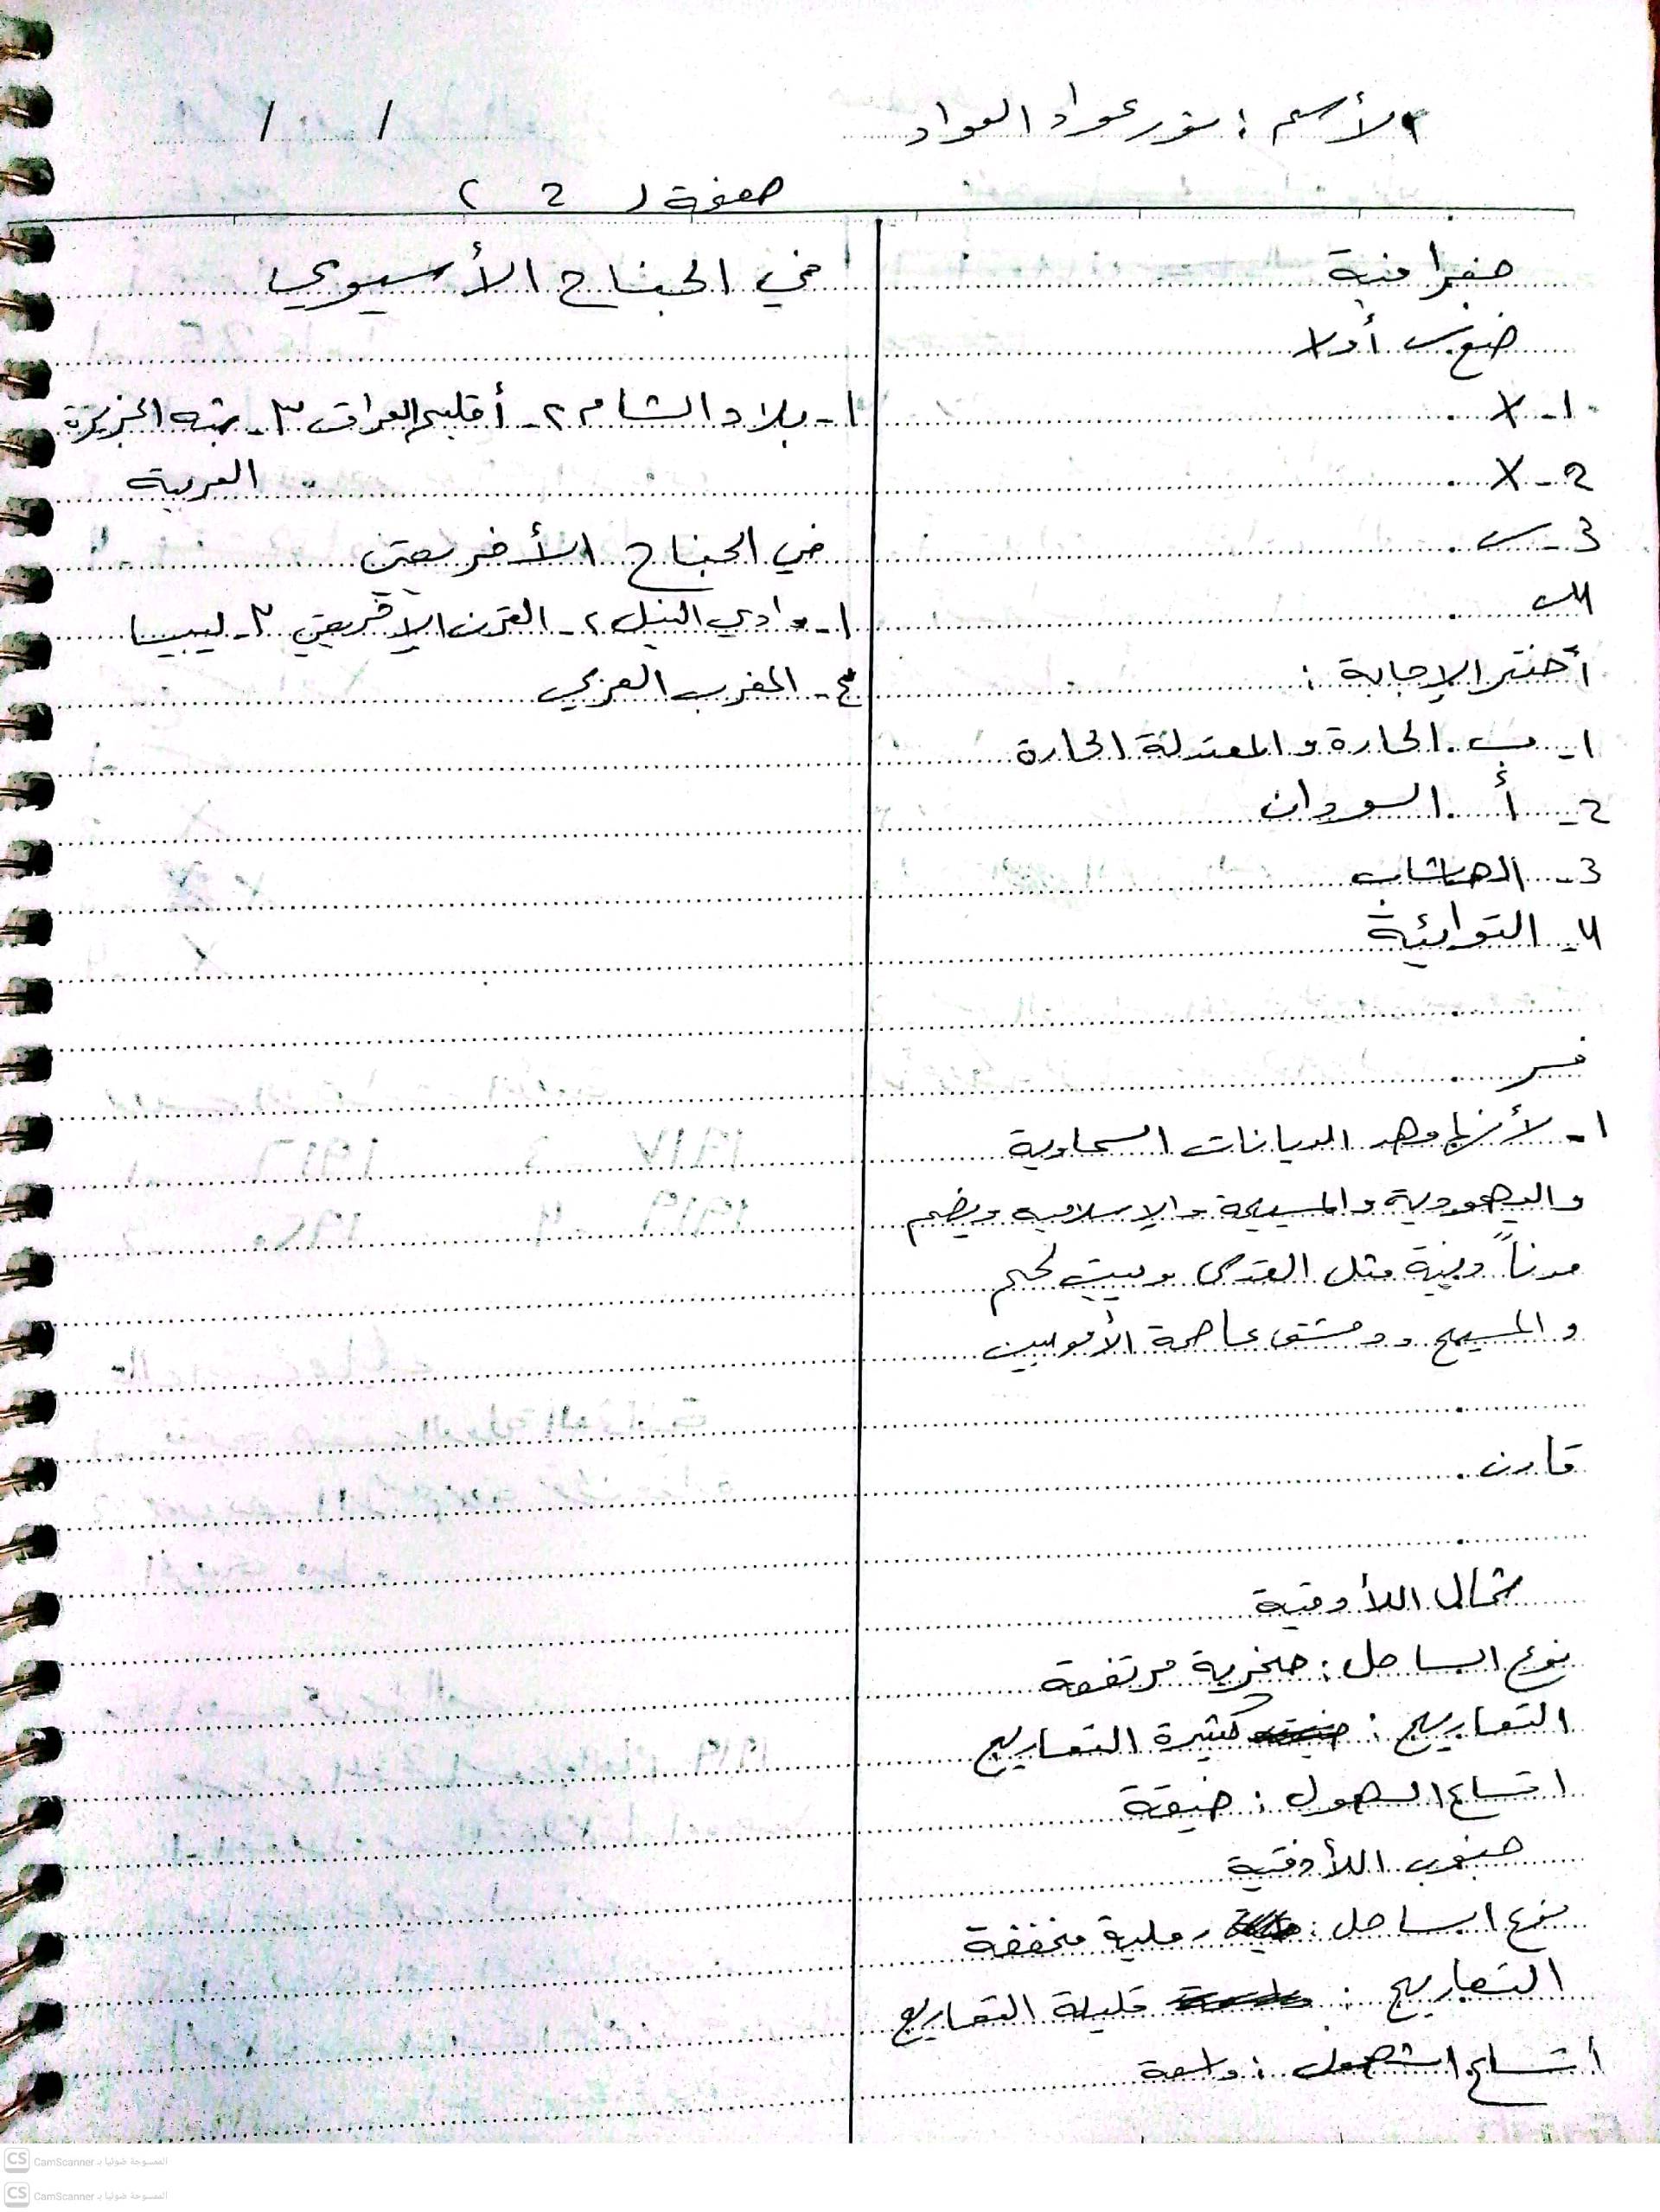 الأسم : نور عواد العواد
/ /
صفحة ( 2 )
جغرافية
ضع س أولا
1- X
2- X
3- س
4 س
أختر الإجابة :
١- ب. الحارة و المعتدلة الحارة
2- أ. السودان
3- الهاشاب
4- التوائية
فسر
١- لأنها وهد الديانات السماوية
واليهودية والمسيحة والإسلامية ويضم
مدناً دينية مثل القدس وبيت لحم
و المسيح ودمشق عاصمة الأمويين
قارن
شمال اللأذقية
نوع الساحل : صخرية مرتفعة
التعاريج : كثيرة التعاريج
اتساع السهول : ضيقة
جنوب اللأذقية
نوع الساحل : رملية منخفضة
التعاريج : قليلة التعاريج
أتساع السهول : واسعة
في الجناح الأسيوي
١- بلاد الشام ٢- أقليم العراق ٣- شبه الجزيرة
العربية
في الجناح الأفريقي
١- وادي النيل ٢- القرن الإفريقي ٣- ليبيا
٤- المغرب العربي
الممسوحة ضوئيا بـ CamScanner
الممسوحة ضوئيا بـ CamScanner